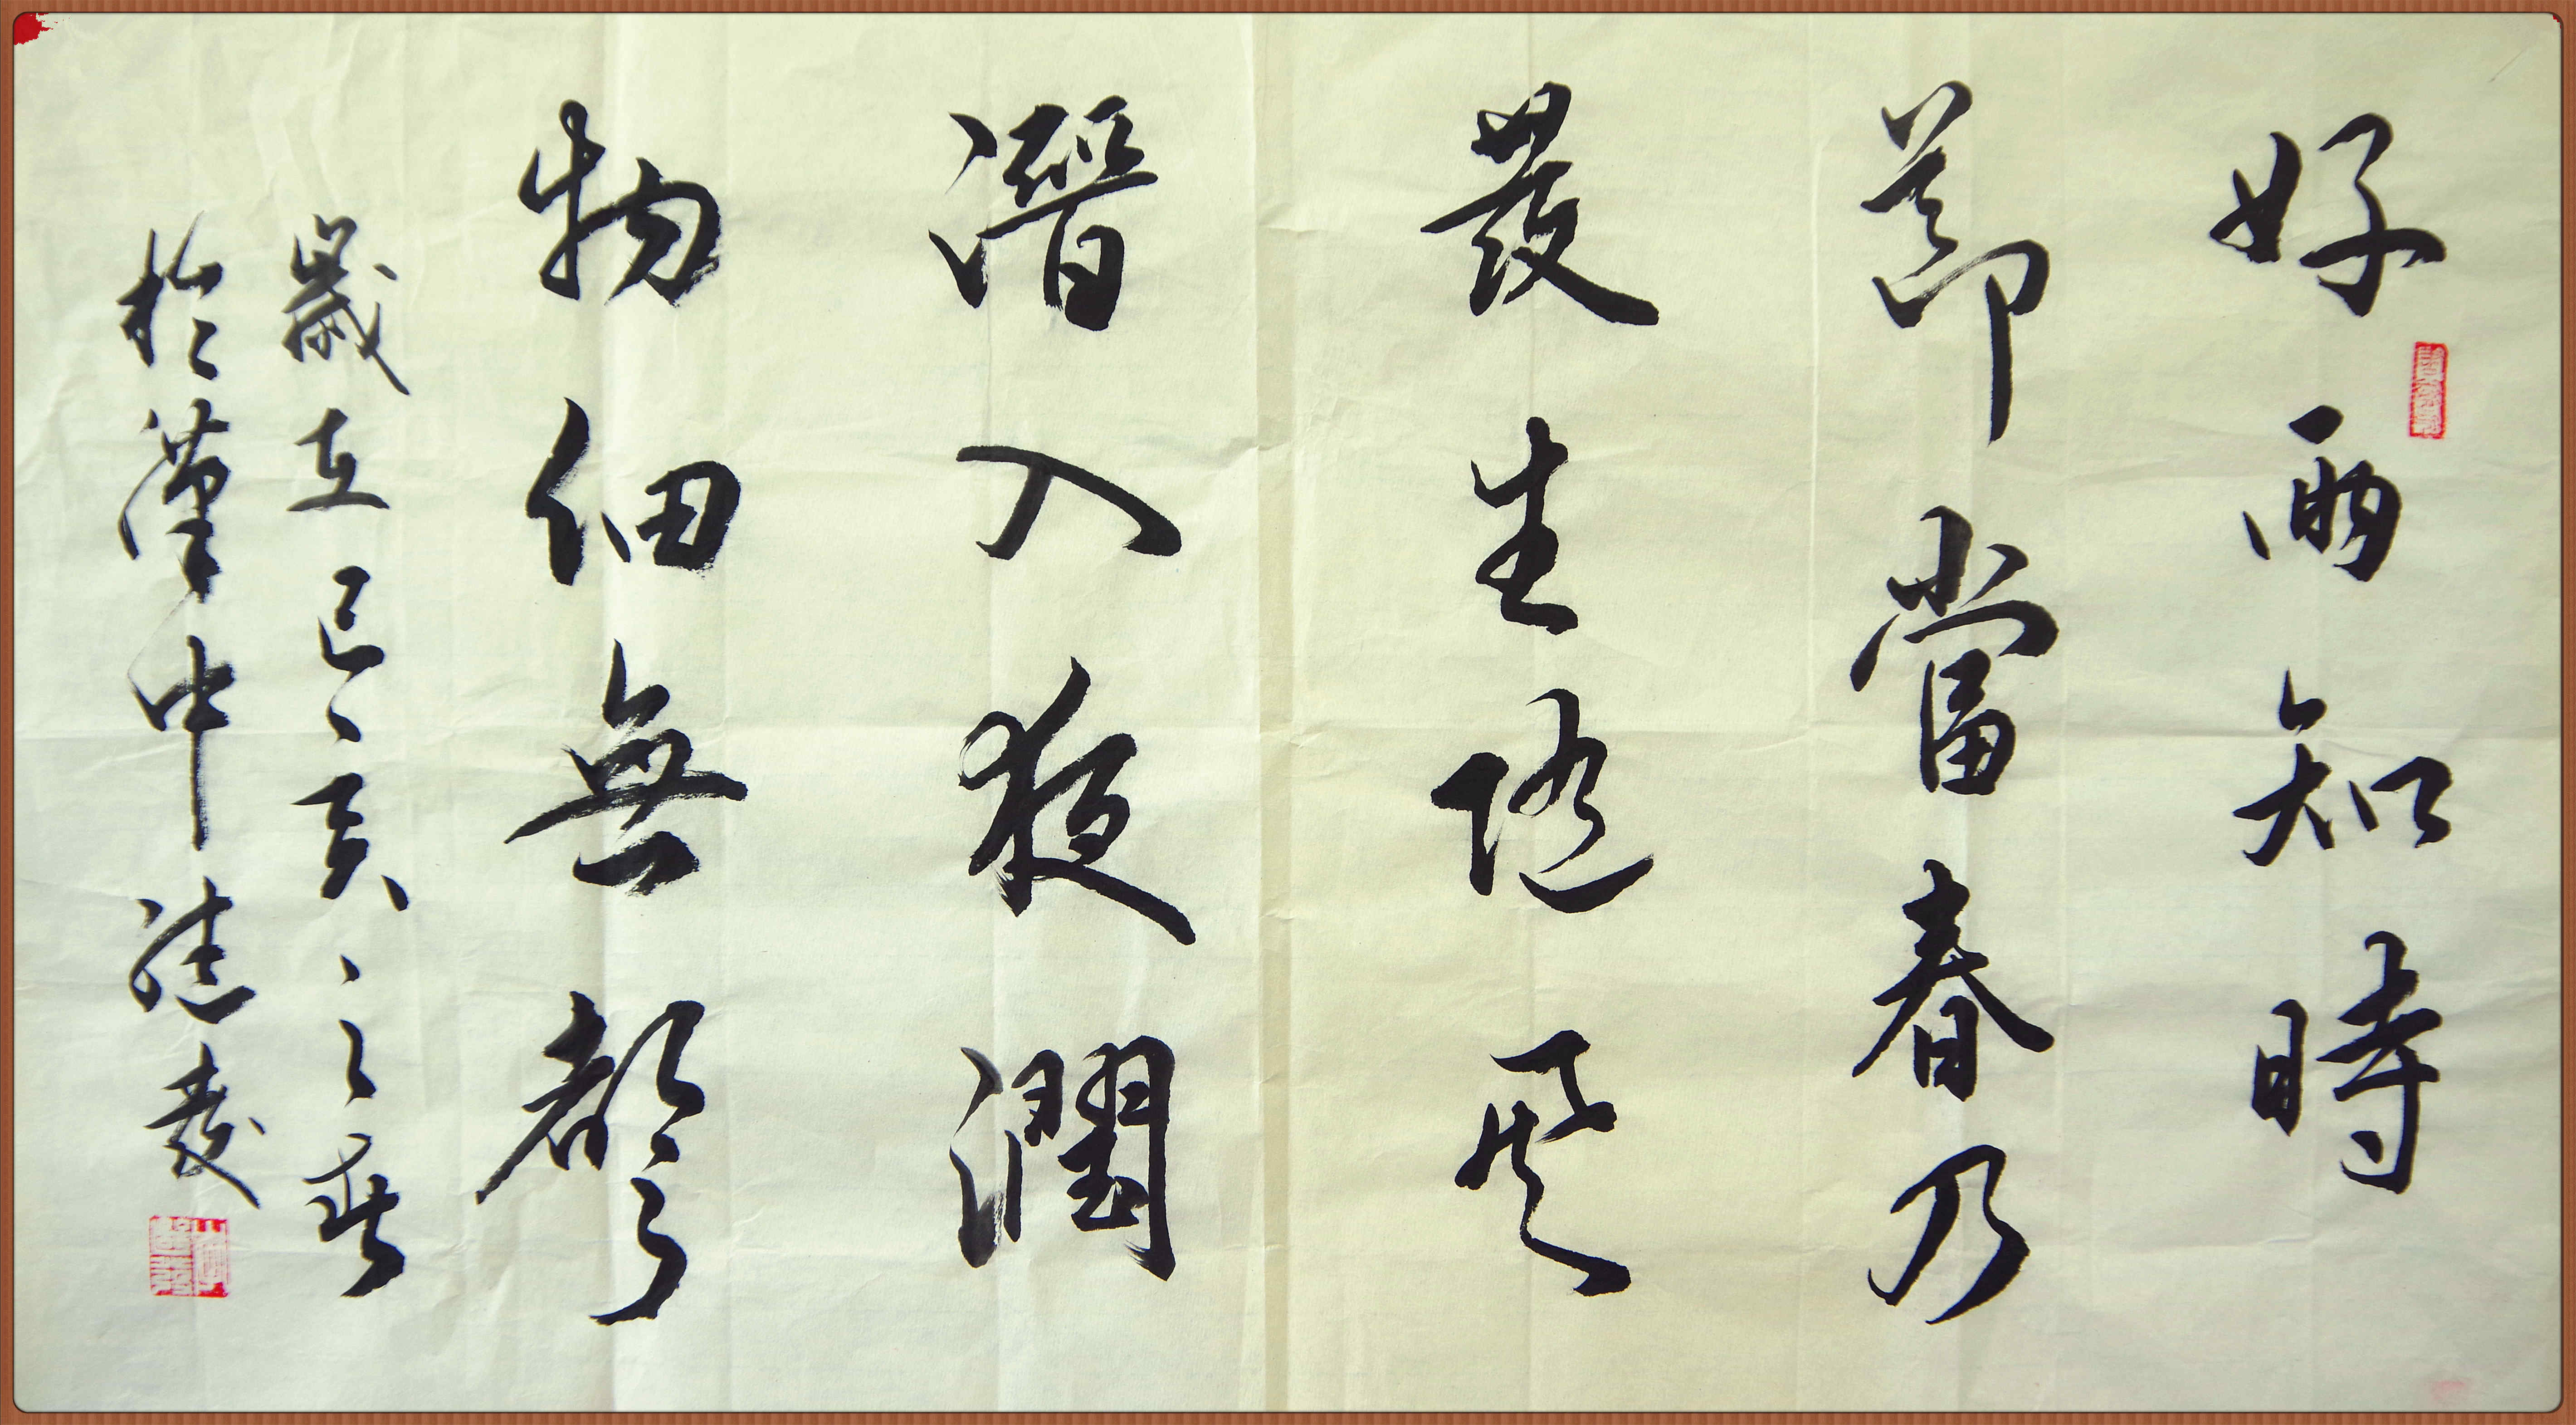 好雨知時
節當春乃
發生随風
潛入夜潤
物細無聲
歲在己亥之春
於漢中建發